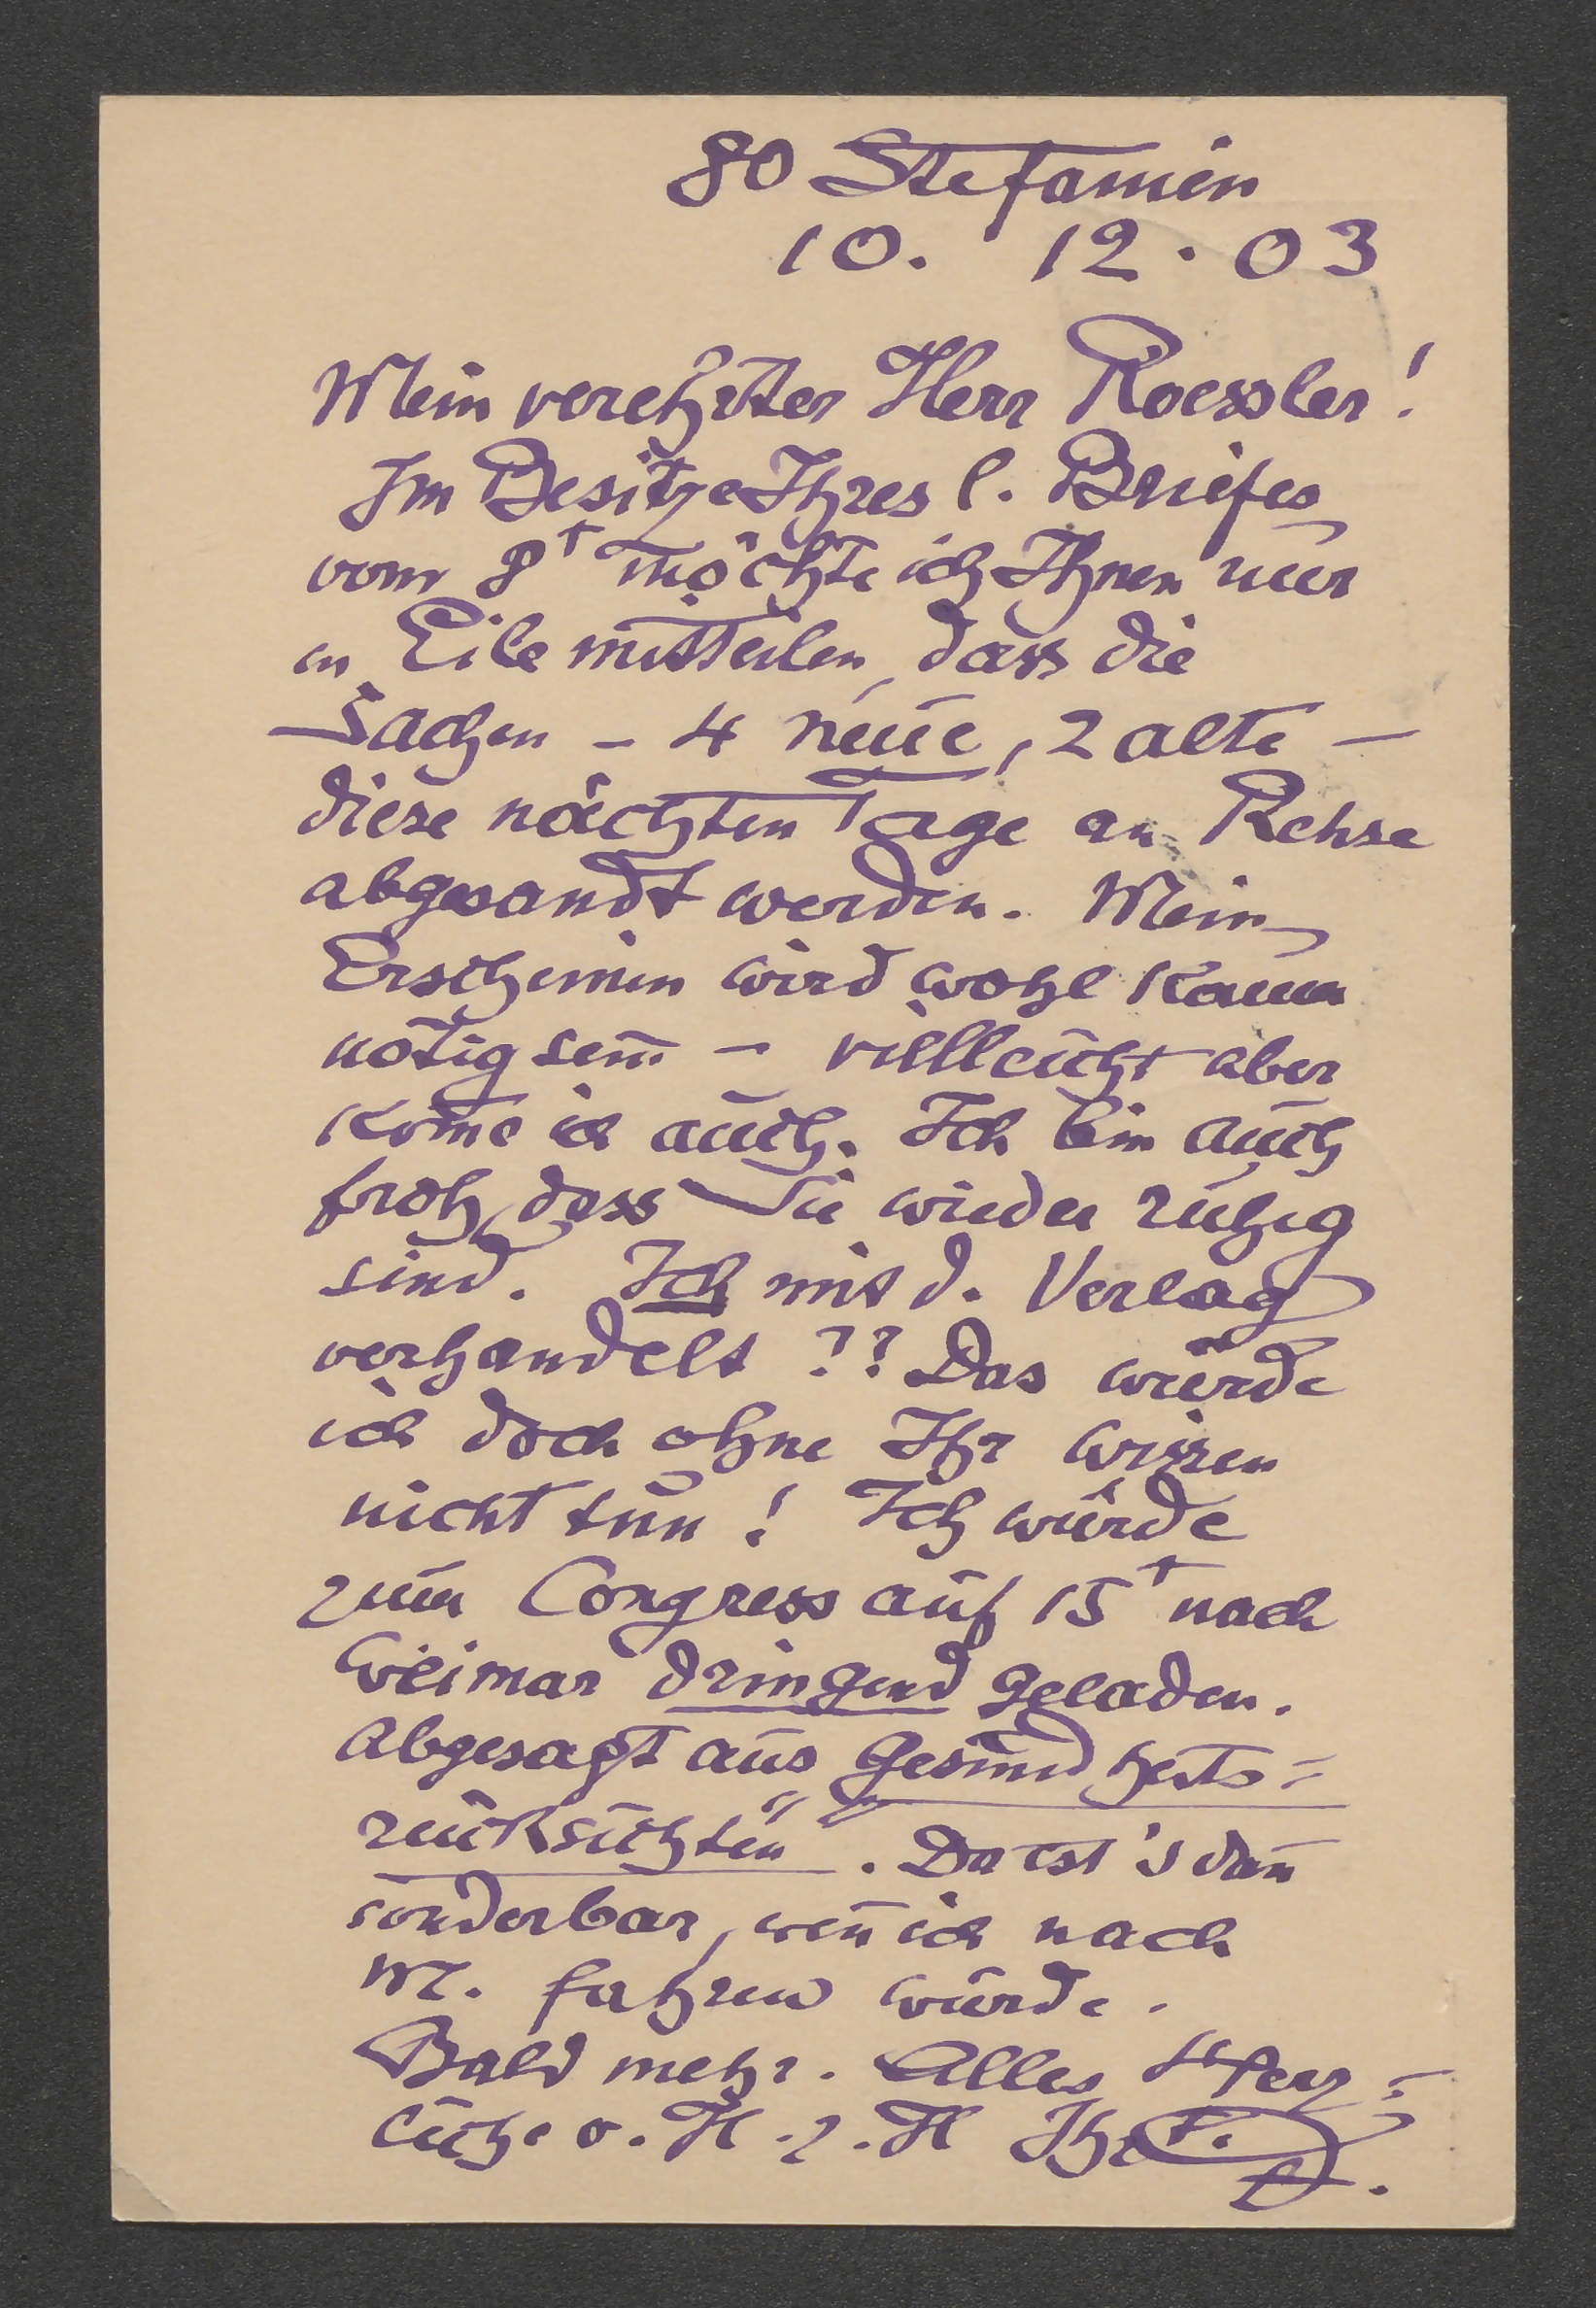 80 Stefanien
10. 12. 03
Mein verehrter Herr Roessler!
Im Besitze Ihres l. Briefes
vom 8t möchte ich Ihnen nur
in Eile mitteilen, dass die
Sachen – 4 neue, 2 alte –
diese nächsten Tage an Rehse
abgesandt werden. Mein
Erscheinen wird wohl kaum
nötig sein – villeicht aber
kom̄e ich auch. Ich bin auch
froh, dass Sie wieder ruhig
sind. Ich mit d. Verlag
verhandelt ?? Das würde
ich doch ohne Ihr Wissen
nicht tun! Ich würde
zum Congress auf 15t nach
Weimar dringend geladen.
Abgesagt aus „Gesundheits=
rücksichten". Da ist's dan̄
sonderbar, wen̄ ich nach
M. fahren würde.
Bald mehr. Alles Herz=
liche v. H. z. H Ihr